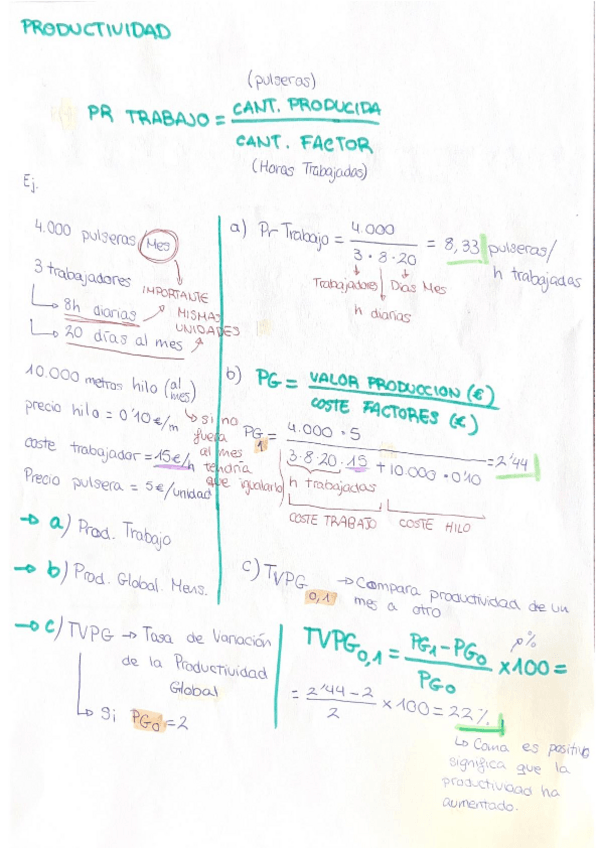 PRODUCTIVIDAD
(pulseras)
PR TRABAJO = CANT. PRODUCIDA / CANT. FACTOR
(Horas Trabajadas)
Ej.
4.000 pulseras Mes
3 trabajadores
IMPORTANTE
MISMAS
UNIDADES
8h diarias
20 días al mes
10.000 metros hilo (al mes)
precio hilo = 0'10 €/m
si no
fuera
al mes
tendría
que igualarlo
coste trabajador = 15€/h
Precio pulsera = 5€/unidad
→ a) Prod. Trabajo
→ b) Prod. Global. Mens.
→ c) TVPG → Tasa de Variación
de la Productividad
Global
↳ Si PG0 = 2
a) Pr Trabajo = 4.000 / 3·8·20 = 8,33 pulseras/
h trabajadas
Trabajadores
Días Mes
h diarias
b) PG = VALOR PRODUCCION (€) / COSTE FACTORES (€)
PG1 = 4.000·5 / 3·8·20·15 + 10.000·0'10 = 2'44
h trabajadas
COSTE TRABAJO
COSTE HILO
c) TVPG 0,1 → Compara productividad de un
mes a otro
TVPG0,1 = PG1 - PG0 / PG0 × 100 =
p%
= 2'44 - 2 / 2 × 100 = 22%
↳ Como es positivo
significa que la
productividad ha
aumentado.